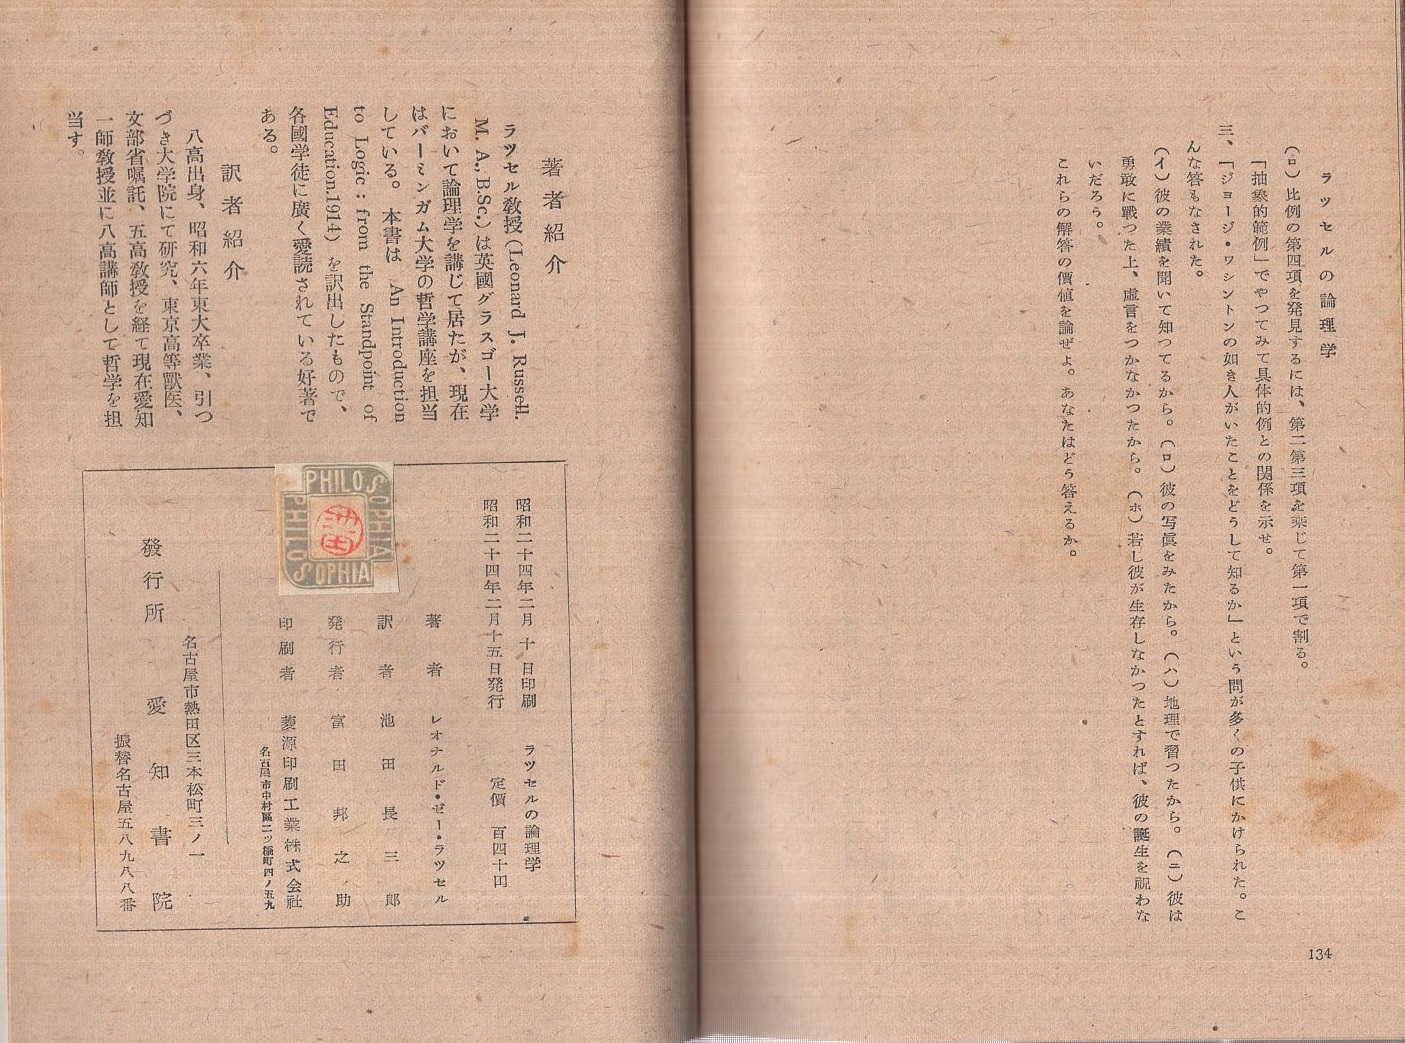 ラツセルの論理学
(ロ)比例の第四項を発見するには、第二第三項を乘じて第一項で割る。
「抽象的範例」でやつてみて具体的例との関係を示せ。
三、「ジョージ・ワシントンの如き人がいたことをどうして知るか」という問が多くの子供にかけられた。こ
んな答もなされた。
(イ)彼の業績を聞いて知つてるから。(ロ)彼の写眞をみたから。(ハ)地理で習つたから。(ニ)彼は
勇敢に戰つた上、虚言をつかなかつたから。(ホ)若し彼が生存しなかつたとすれば、彼の誕生を祝わな
いだろう。
これらの解答の價値を論ぜよ。あなたはどう答えるか。
134
著者紹介
ラツセル敎授(Leonard J. Russell.
M. A., B.Sc.)は英國グラスゴー大学
において論理学を講じて居たが、現在
はバーミンガム大学の哲学講座を担当
している。本書は An Introduction
to Logic : from the Standpoint of
Education.1914)を訳出したもので、
各國学徒に廣く愛読されている好著で
ある。
訳者紹介
八高出身、昭和六年東大卒業、引つ
づき大学院にて研究、東京高等獸医、
文部省嘱託、五高敎授を経て現在愛知
一師敎授並に八高講師として哲学を担
当す。
昭和二十四年二月十日印刷
昭和二十四年二月十五日発行
ラツセルの論理学
定價 百四十円
著者 レオナルド・ゼー・ラツセル
訳者 池田長三郎
発行者 富田邦之助
印刷者 菱源印刷工業株式会社
名古屋市中村區二ッ橋町四ノ五九
名古屋市熱田区三本松町三ノ一
發行所 愛知書院
振替名古屋五八九八八番
PHILOSOPHIA
PHILOSOPHIA